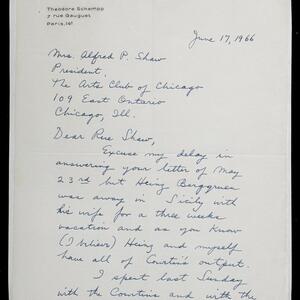 Theodore Schempp
7 rue Gauguet
Paris, 14e
June 17, 1966
Mrs. Alfred P. Shaw
President,
The Arts Club of Chicago
109 East Ontario
Chicago, Ill.
Dear Rue Shaw,
Excuse my delay in
answering your letter of May
23rd but Heinz Berggruen
was away in Sicily with
his wife for a three weeks
vacation and as you know
(I believe) Heinz and myself
have all of Courtin's output.
I spent last Sunday
with the Courtins and with the